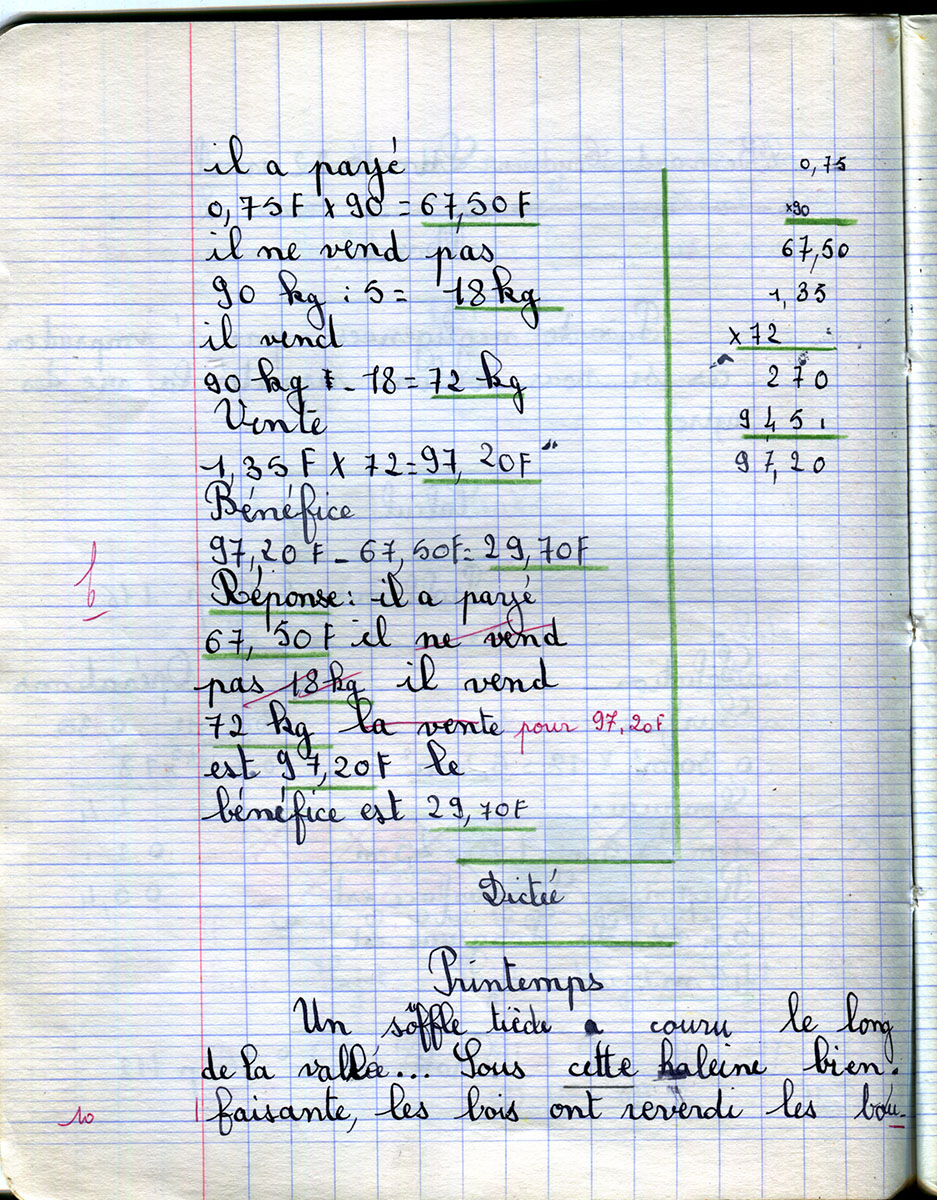 il a payé
0,75F x 90 = 67,50F
il ne vend pas
90 kg : 5 = 18kg
il vend
90 kg - 18 = 72 kg
Vente
1,35F x 72 = 97,20F
Bénéfice
97,20F - 67,50F = 29,70F
b
Réponse: il a payé
67,50F il ne vend
pas 18kg il vend
72 kg la vente pour 97,20F
est 97,20F le
bénéfice est 29,70F
0,75
x90
67,50
1,35
x72
270
945
97,20
Dictée
Printemps
Un souffle tiède a couru le long
de la vallée... Sous cette haleine bien-
10 faisante, les bois ont reverdi les bou-